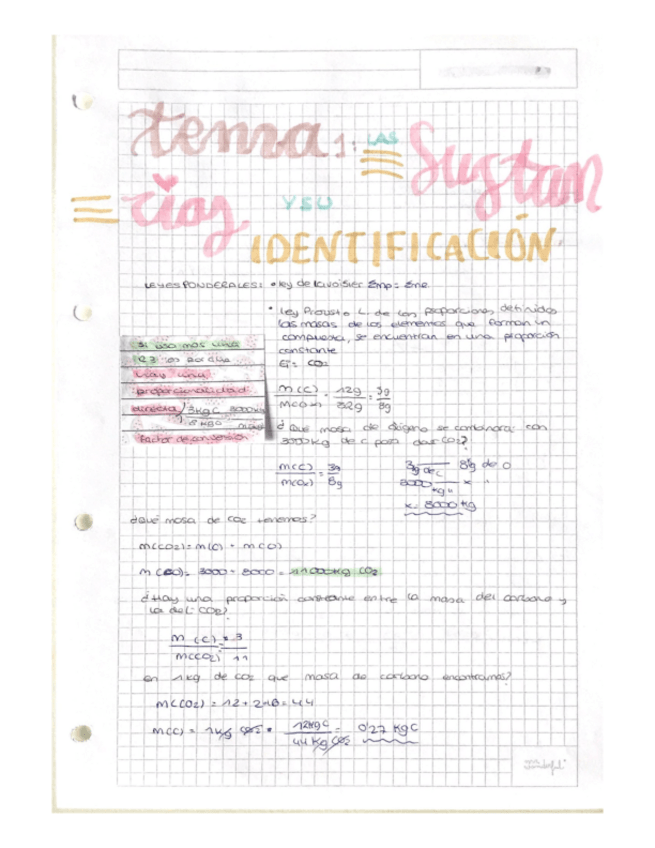 tema 1: LAS Sustan
cias Y SU
IDENTIFICACIÓN
LEYES PONDERALES: • Ley de Lavoisier Σmp = Σme
• Ley Proust o L. de las proporciones definidas
las masas de los elementos que forman un
compuesto, se encuentran en una proporción
constante
EJ: CO2
Si uso más una
regla
hay una
proporcionalidad
directa 3kg C 3000kg
8 kg O
Factor de conversión
m(C) = 12g = 3g
m(Ox) 32g 8g
¿Qué masa de oxígeno se combinará con
3000kg de C para dar CO2?
m(C) = 3g
m(Ox) 8g
3g de C 8g de O
3000 kg x
x = 8000 kg
¿Qué masa de CO2 tenemos?
m(CO2) = m(C) + m(O)
m (CO2) = 3000 + 8000 = 11000kg CO2
¿Hay una proporción constante entre la masa del carbono y
la del CO2?
m (C) = 3
m(CO2) 11
en 1kg de CO2 que masa de carbono encontramos?
M(CO2) = 12 + 2·16 = 44
m(C) = 1kg CO2 • 12kg C = 0'27 kg C
44 kg CO2
mr. wonderful*